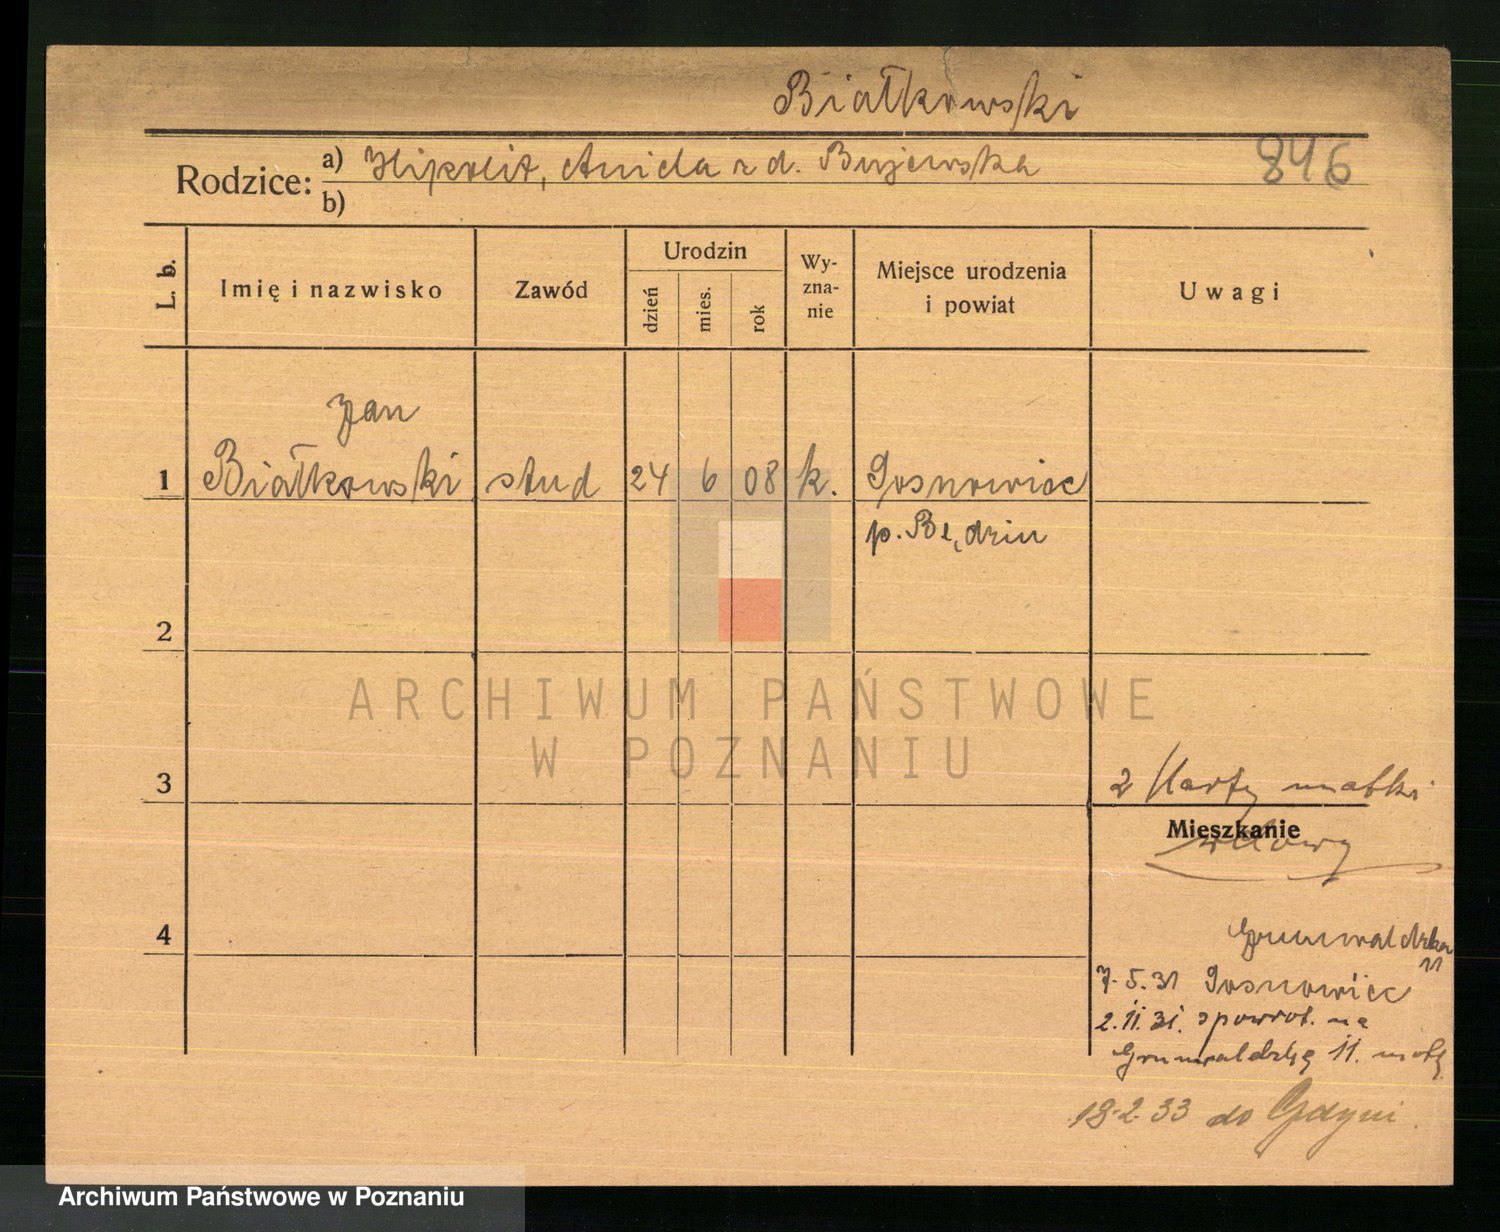 Białkowski
Rodzice: a) Hipolit, Aniela z d. Bujewska 846
b)
L. b. Imię i nazwisko Zawód Urodzin dzień mies. rok Wy-zna-nie Miejsce urodzenia i powiat Uwagi
Jan
1 Białkowski stud 24 6 08 k. Sosnowice
p. Będzin
2
ARCHIWUM PAŃSTWOWE
W POZNANIU
3 2 Karty matki
Mieszkanie
wdowy
4 Grunwaldzka
11
7.5.31 Sosnowice
2.11.31. spowrot. na
Grunwaldzką 11.
18.2.33 do Gdyni.
Archiwum Państwowe w Poznaniu